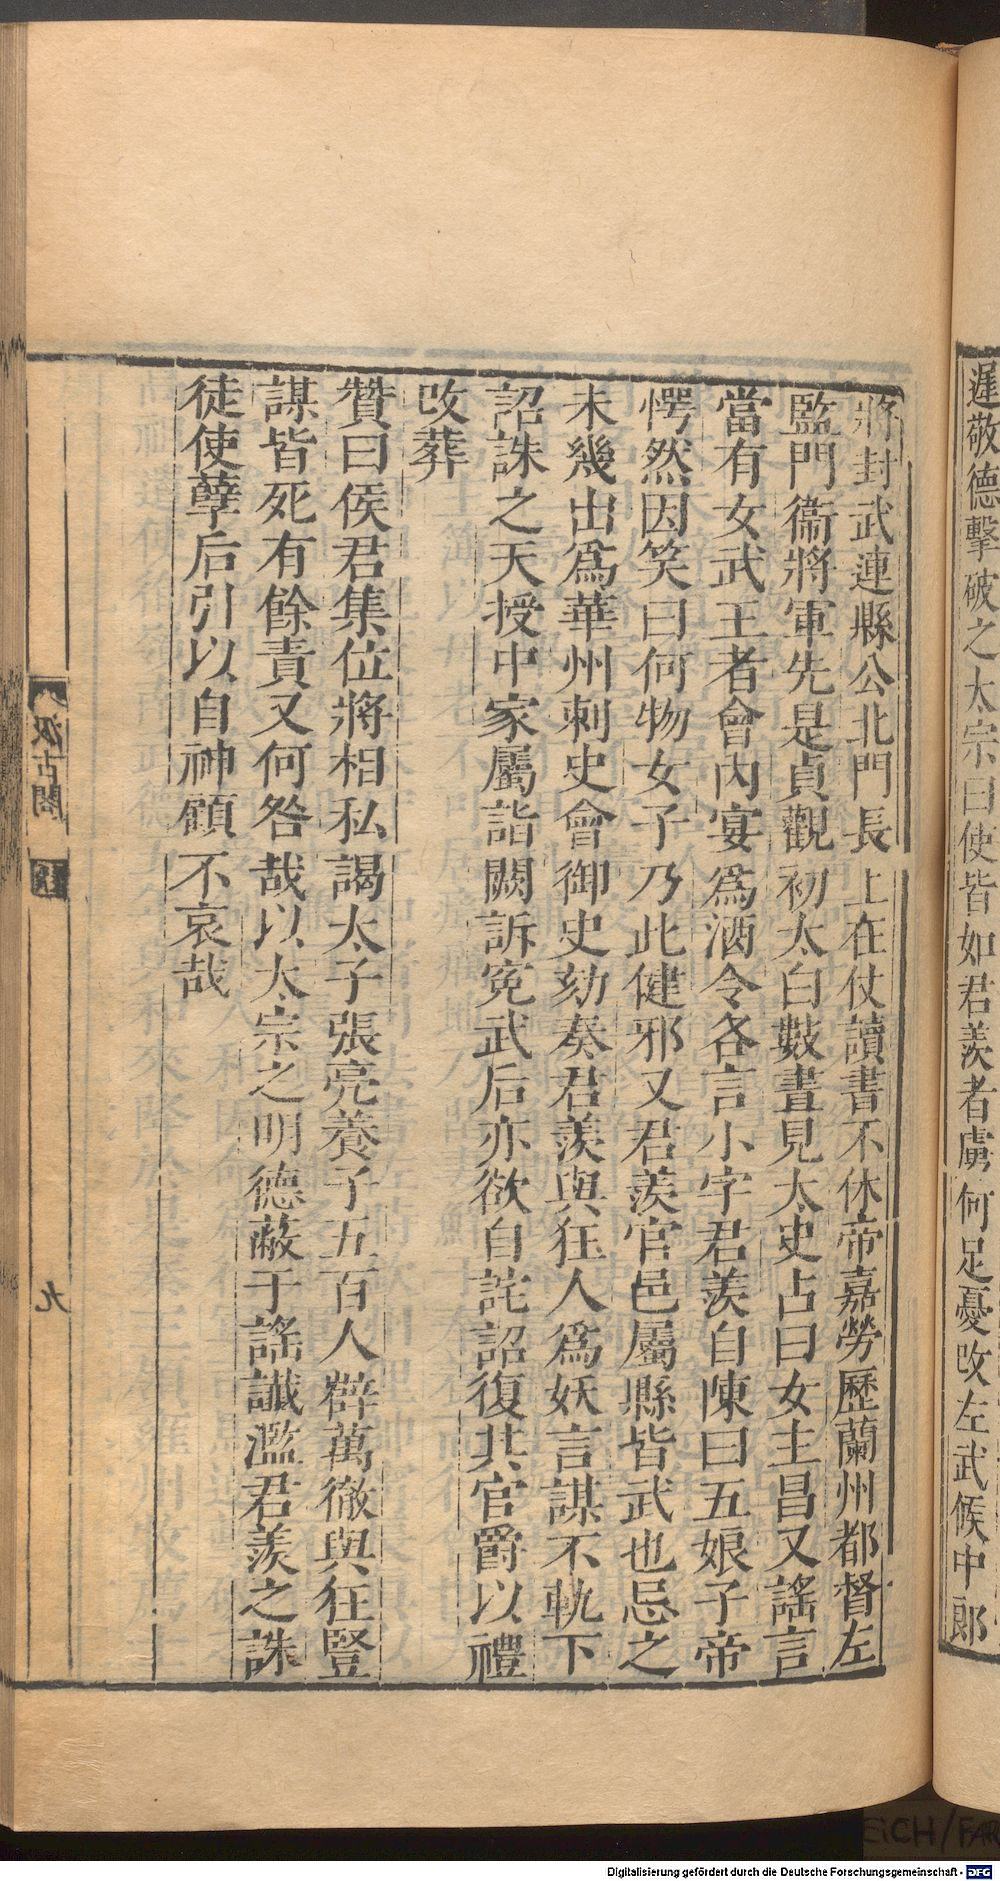 遲敬德擊破之太宗曰使皆如君羨者虜何足憂改左武候中郎
將封武連縣公北門長上在仗讀書不休帝嘉勞歷蘭州都督左
監門衞將軍先是貞觀初太白數晝見太史占曰女主昌又謠言
當有女武王者會內宴爲酒令各言小字君羨自陳曰五娘子帝
愕然因笑曰何物女子乃此健邪又君羨官邑屬縣皆武也忌之
未幾出爲華州刺史會御史劾奏君羨與狂人爲妖言謀不軌下
詔誅之天授中家屬詣闕訴寃武后亦欲自詫詔復其官爵以禮
改葬
贊曰侯君集位將相私謁太子張亮養子五百人薛萬徹與狂豎
謀皆死有餘責又何咎哉以太宗之明德蔽于謠讖濫君羨之誅
徒使孽后引以自神顧不哀哉
汲古閣
九
Digitalisierung gefördert durch die Deutsche Forschungsgemeinschaft - DFG